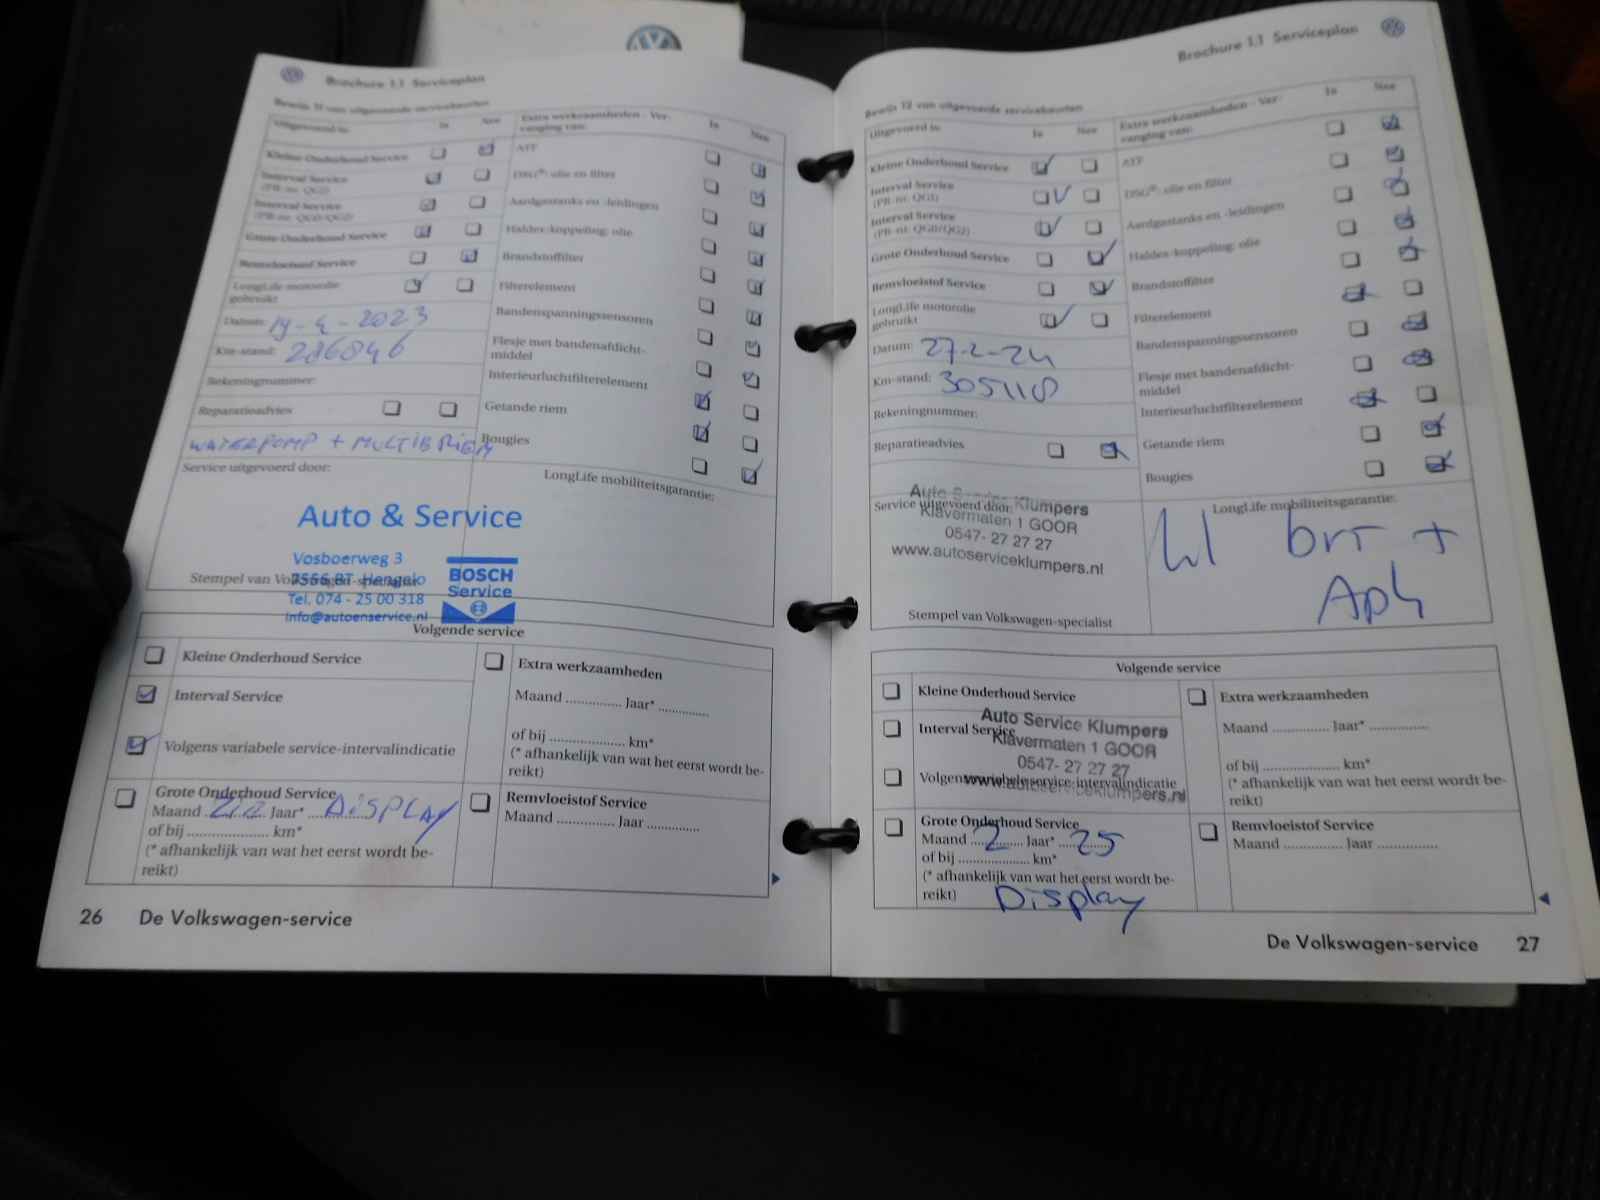 Brochure 1.1 Serviceplan
Bewijs 11 van uitgevoerde servicebeurten
Uitgevoerd is:
Ja
Nee
Kleine Onderhoud Service
Interval Service
(PR-nr. QG1)
Interval Service
(PR-nr. QG0/QG2)
Grote Onderhoud Service
Remvloeistof Service
LongLife motorolie
gebruikt
Datum: 19-4-2023
Km-stand: 286846
Rekeningnummer:
Reparatieadvies
WATERPOMP + MULTIBRIEM
Extra werkzaamheden - Ver-
vanging van:
Ja
Nee
ATF
DSG®: olie en filter
Aardgastanks en -leidingen
Haldex-koppeling: olie
Brandstoffilter
Filterelement
Bandenspanningssensoren
Flesje met bandenafdicht-
middel
Interieurluchtfilterelement
Getande riem
Bougies
Service uitgevoerd door:
LongLife mobiliteitsgarantie:
Auto & Service
Vosboerweg 3
7556 BT Hengelo
Tel. 074 - 25 00 318
info@autoenservice.nl
BOSCH
Service
Stempel van Volkswagen-specialist
Volgende service
Kleine Onderhoud Service
Interval Service
Volgens variabele service-intervalindicatie
Grote Onderhoud Service
Maand ZIE Jaar* DISPLAY
of bij ..................... km*
(* afhankelijk van wat het eerst wordt be-
reikt)
Extra werkzaamheden
Maand ............... Jaar* .............
of bij .................... km*
(* afhankelijk van wat het eerst wordt be-
reikt)
Remvloeistof Service
Maand ............... Jaar ..............
26 De Volkswagen-service
Brochure 1.1 Serviceplan
Bewijs 12 van uitgevoerde servicebeurten
Uitgevoerd is:
Ja
Nee
Kleine Onderhoud Service
Interval Service
(PR-nr. QG1)
Interval Service
(PR-nr. QG0/QG2)
Grote Onderhoud Service
Remvloeistof Service
LongLife motorolie
gebruikt
Datum: 27-2-24
Km-stand: 305118
Rekeningnummer:
Reparatieadvies
Extra werkzaamheden - Ver-
vanging van:
Ja
Nee
ATF
DSG®: olie en filter
Aardgastanks en -leidingen
Haldex-koppeling: olie
Brandstoffilter
Filterelement
Bandenspanningssensoren
Flesje met bandenafdicht-
middel
Interieurluchtfilterelement
Getande riem
Bougies
Service uitgevoerd door:
Auto Service Klumpers
Klavermaten 1 GOOR
0547- 27 27 27
www.autoserviceklumpers.nl
Stempel van Volkswagen-specialist
LongLife mobiliteitsgarantie:
brt +
Apk
Volgende service
Kleine Onderhoud Service
Interval Service
Auto Service Klumpers
Klavermaten 1 GOOR
0547- 27 27 27
www.autoserviceklumpers.nl
Volgens variabele service-intervalindicatie
Grote Onderhoud Service
Maand 2 Jaar* 25
of bij .................... km*
(* afhankelijk van wat het eerst wordt be-
reikt)
Display
Extra werkzaamheden
Maand ............... Jaar* ...............
of bij .................... km*
(* afhankelijk van wat het eerst wordt be-
reikt)
Remvloeistof Service
Maand ............... Jaar ...............
De Volkswagen-service 27